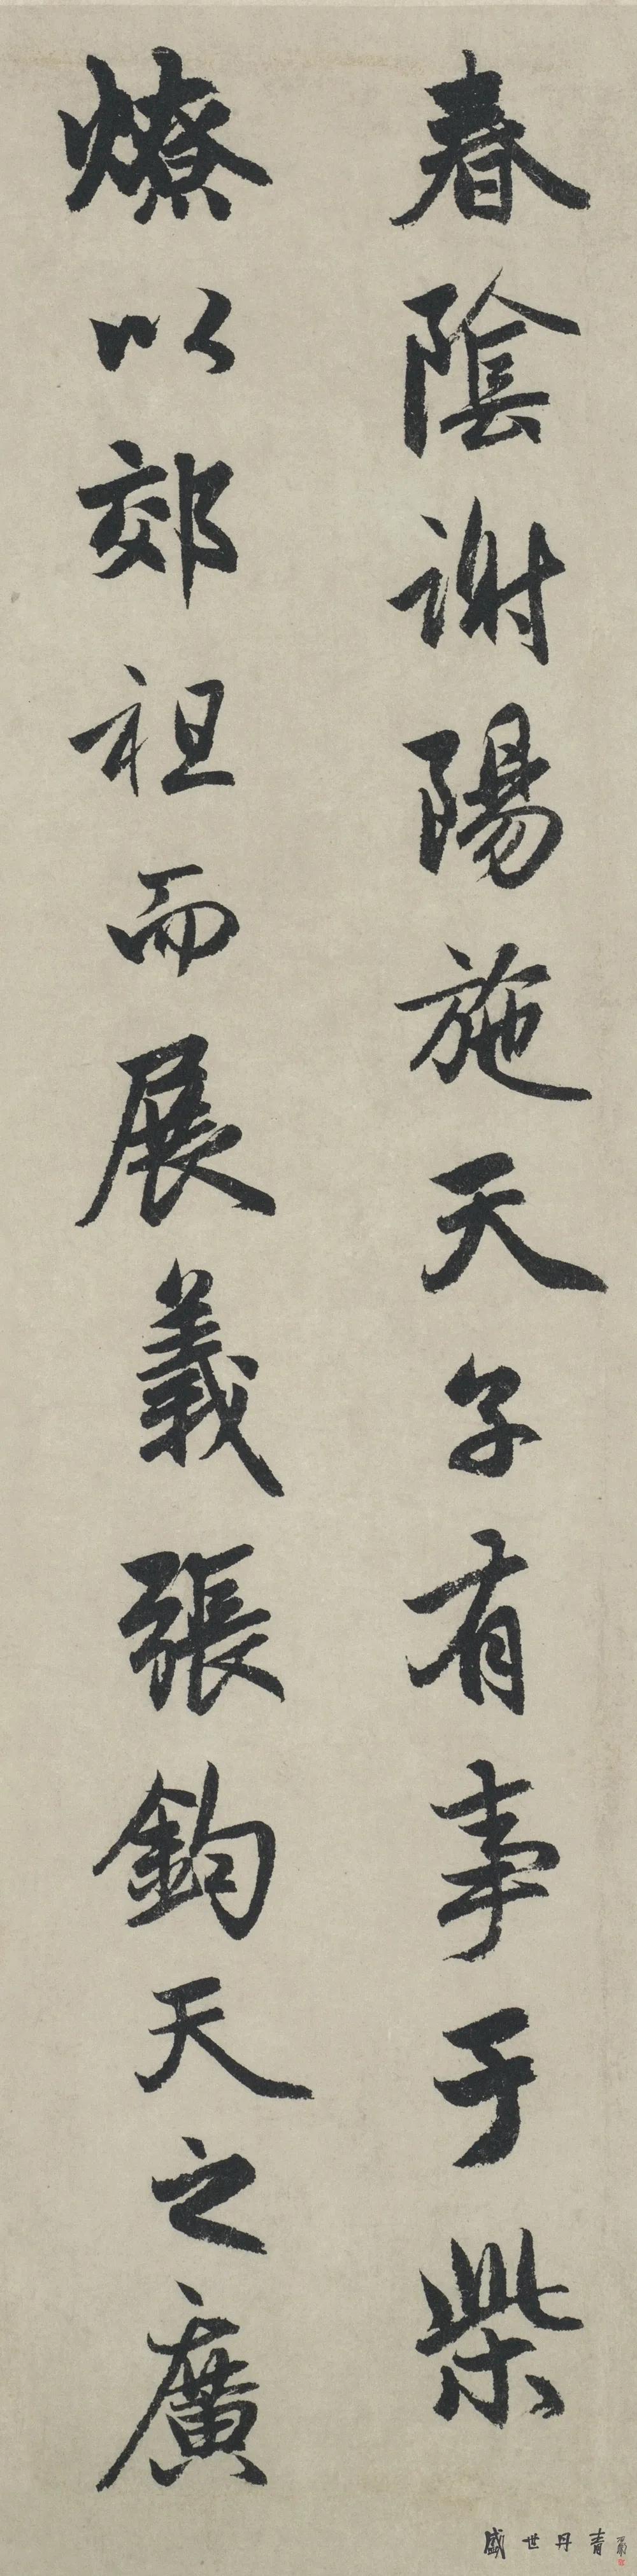 春陰謝陽施天子有事于柴
燎以郊祖而展義張鈞天之廣
盛世丹青